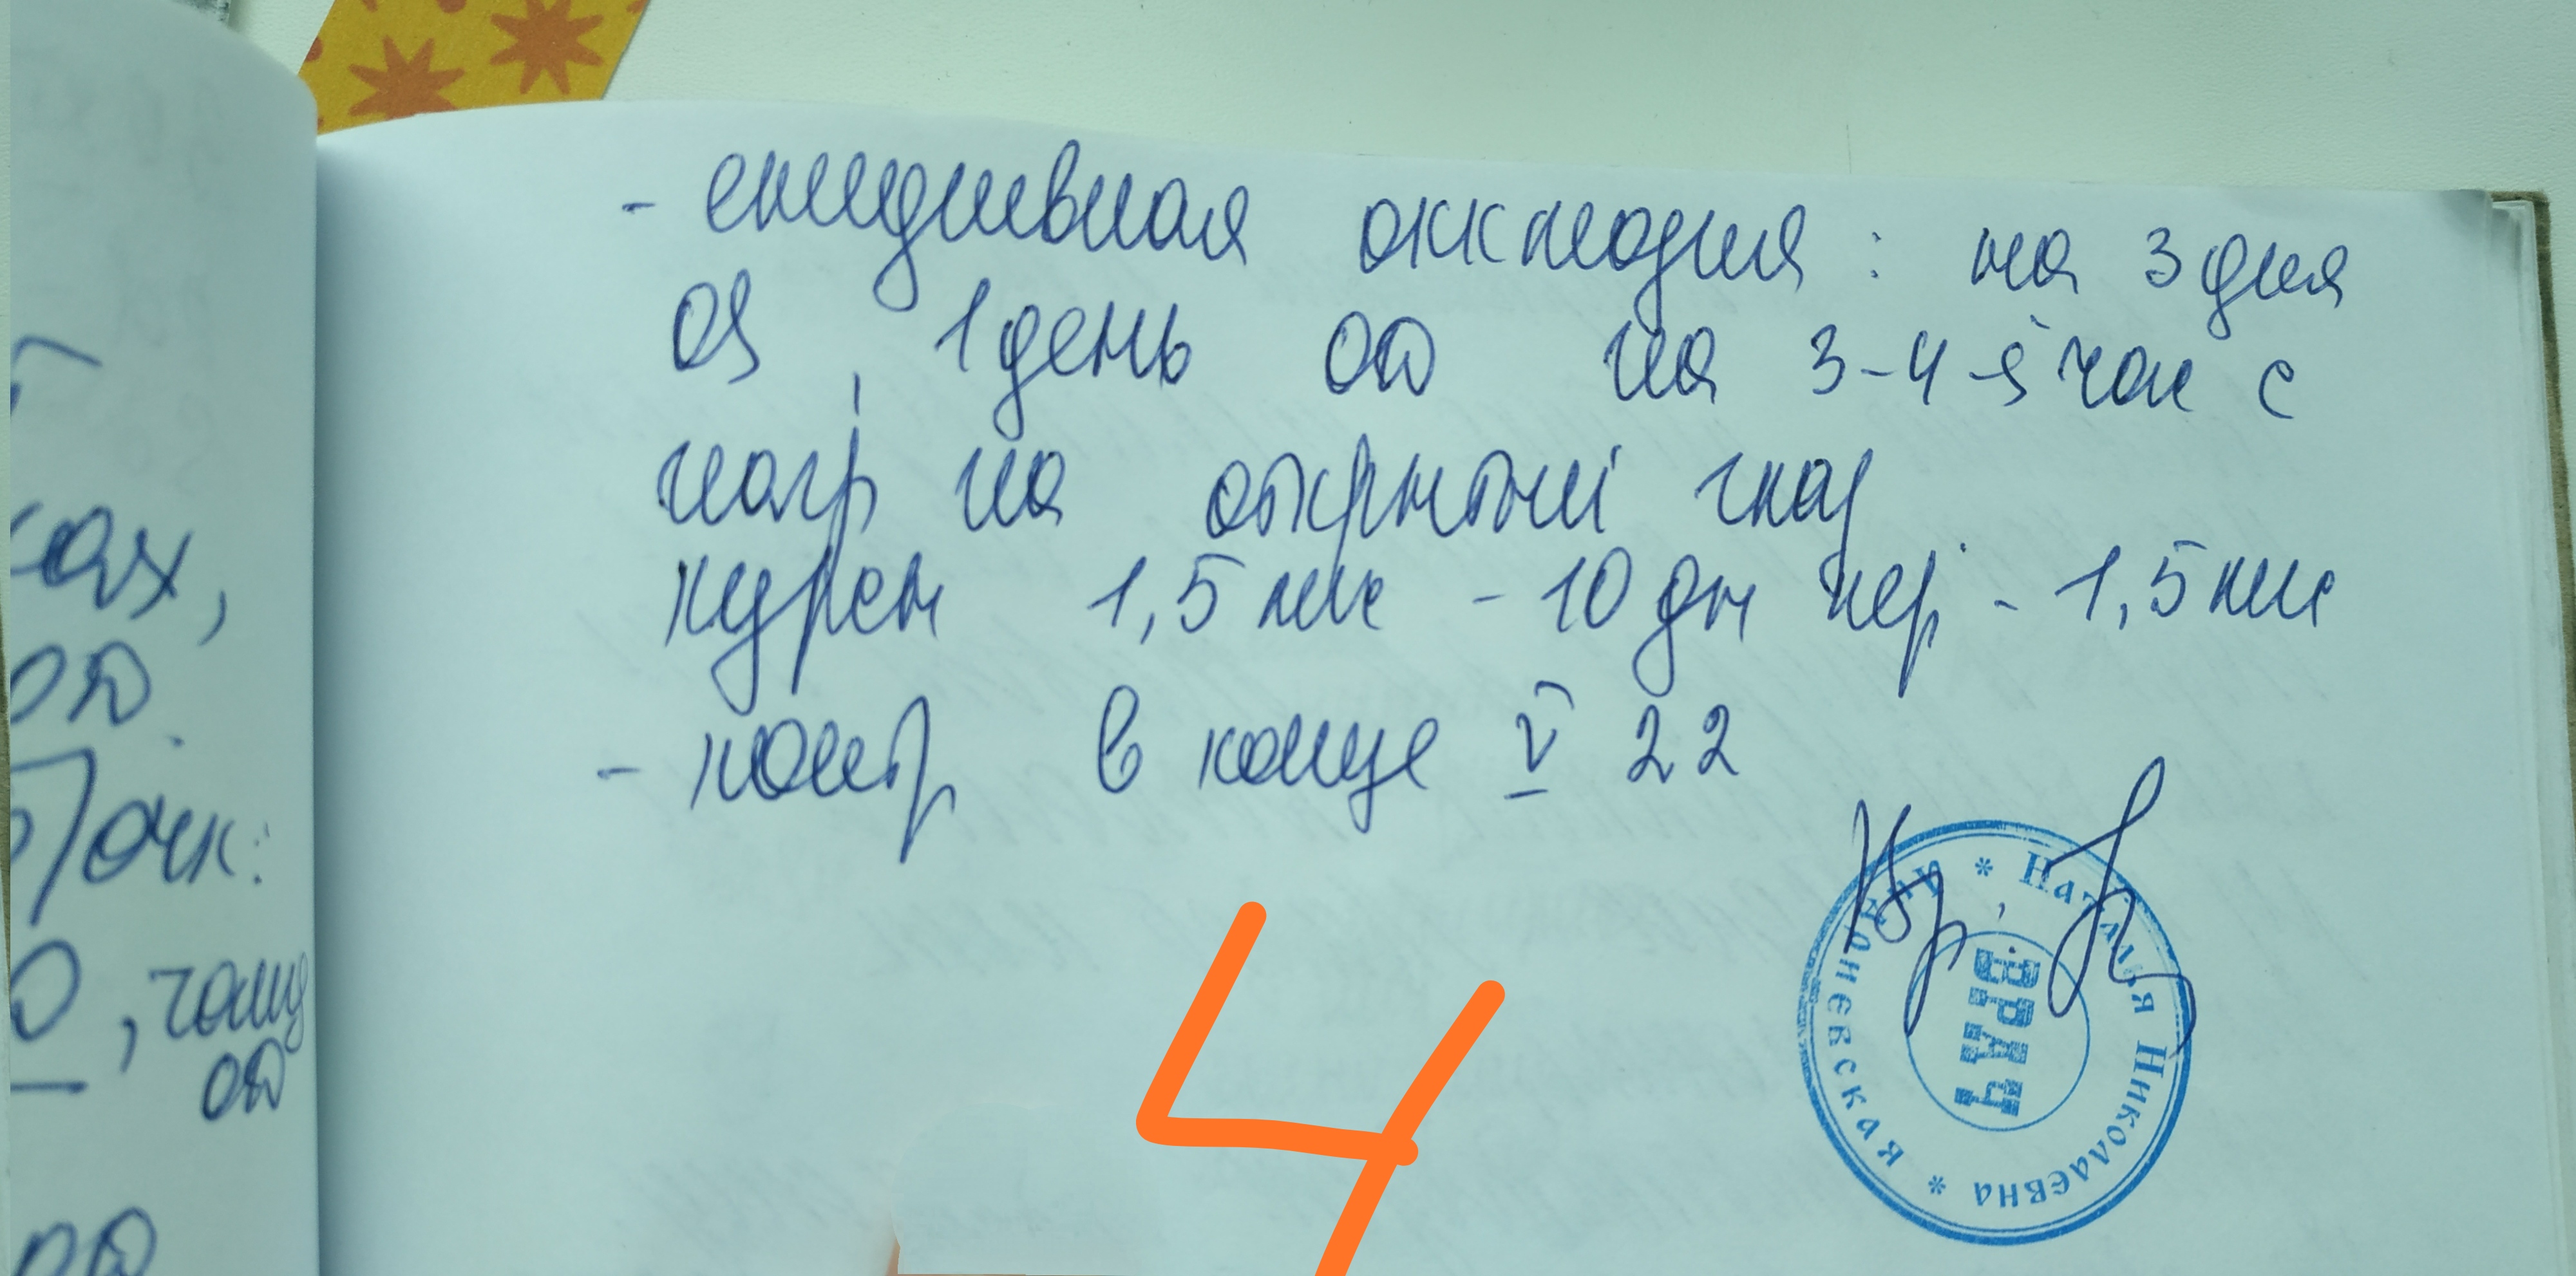 ах,
OD
очк:
, чащ
OD
OD
- ежедневная окклюзия: на 3 дня
OS, 1 день OD на 3-4 час с
нагр на открытый глаз
курсом 1,5 мес - 10 дн пер - 1,5 мес
- контр в конце V 22
4
* Наталья Николаевна *
ВРАЧ